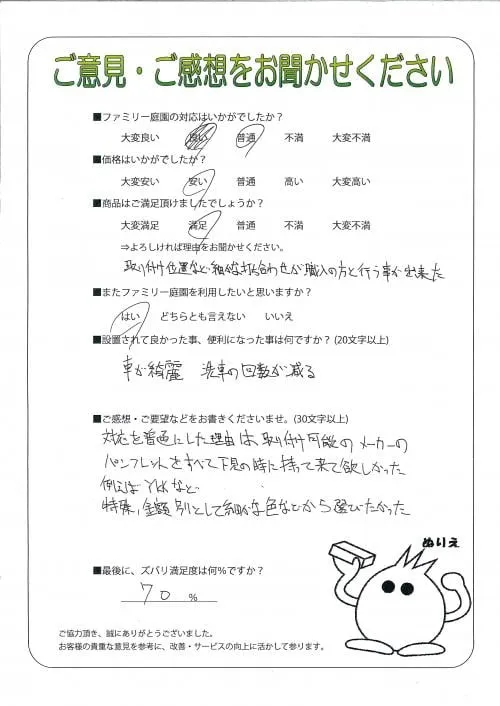 ご意見・ご感想をお聞かせください
■ファミリー庭園の対応はいかがでしたか？
大変良い 良い 普通 不満 大変不満
■価格はいかがでしたか？
大変安い 安い 普通 高い 大変高い
■商品はご満足頂けましたでしょうか？
大変満足 満足 普通 不満 大変不満
⇒よろしければ理由をお聞かせください。
取り付け位置など細かな打ち合わせが職人の方と行う事が出来た
■またファミリー庭園を利用したいと思いますか？
はい どちらとも言えない いいえ
■設置されて良かった事、便利になった事は何ですか？ (20文字以上)
車が綺麗 洗車の回数が減る
■ご感想・ご要望などをお書きくださいませ。(30文字以上)
対応を普通にした理由は、取り付け可能のメーカーの
パンフレットをすべて下見の時に持って来て欲しかった
例えばYKKなど
特殊、金額別として細かな色などから選びたかった
ぬりえ
■最後に、ズバリ満足度は何％ですか？
70 ％
ご協力頂き、誠にありがとうございました。
お客様の貴重な意見を参考に、改善・サービスの向上に活かして参ります。